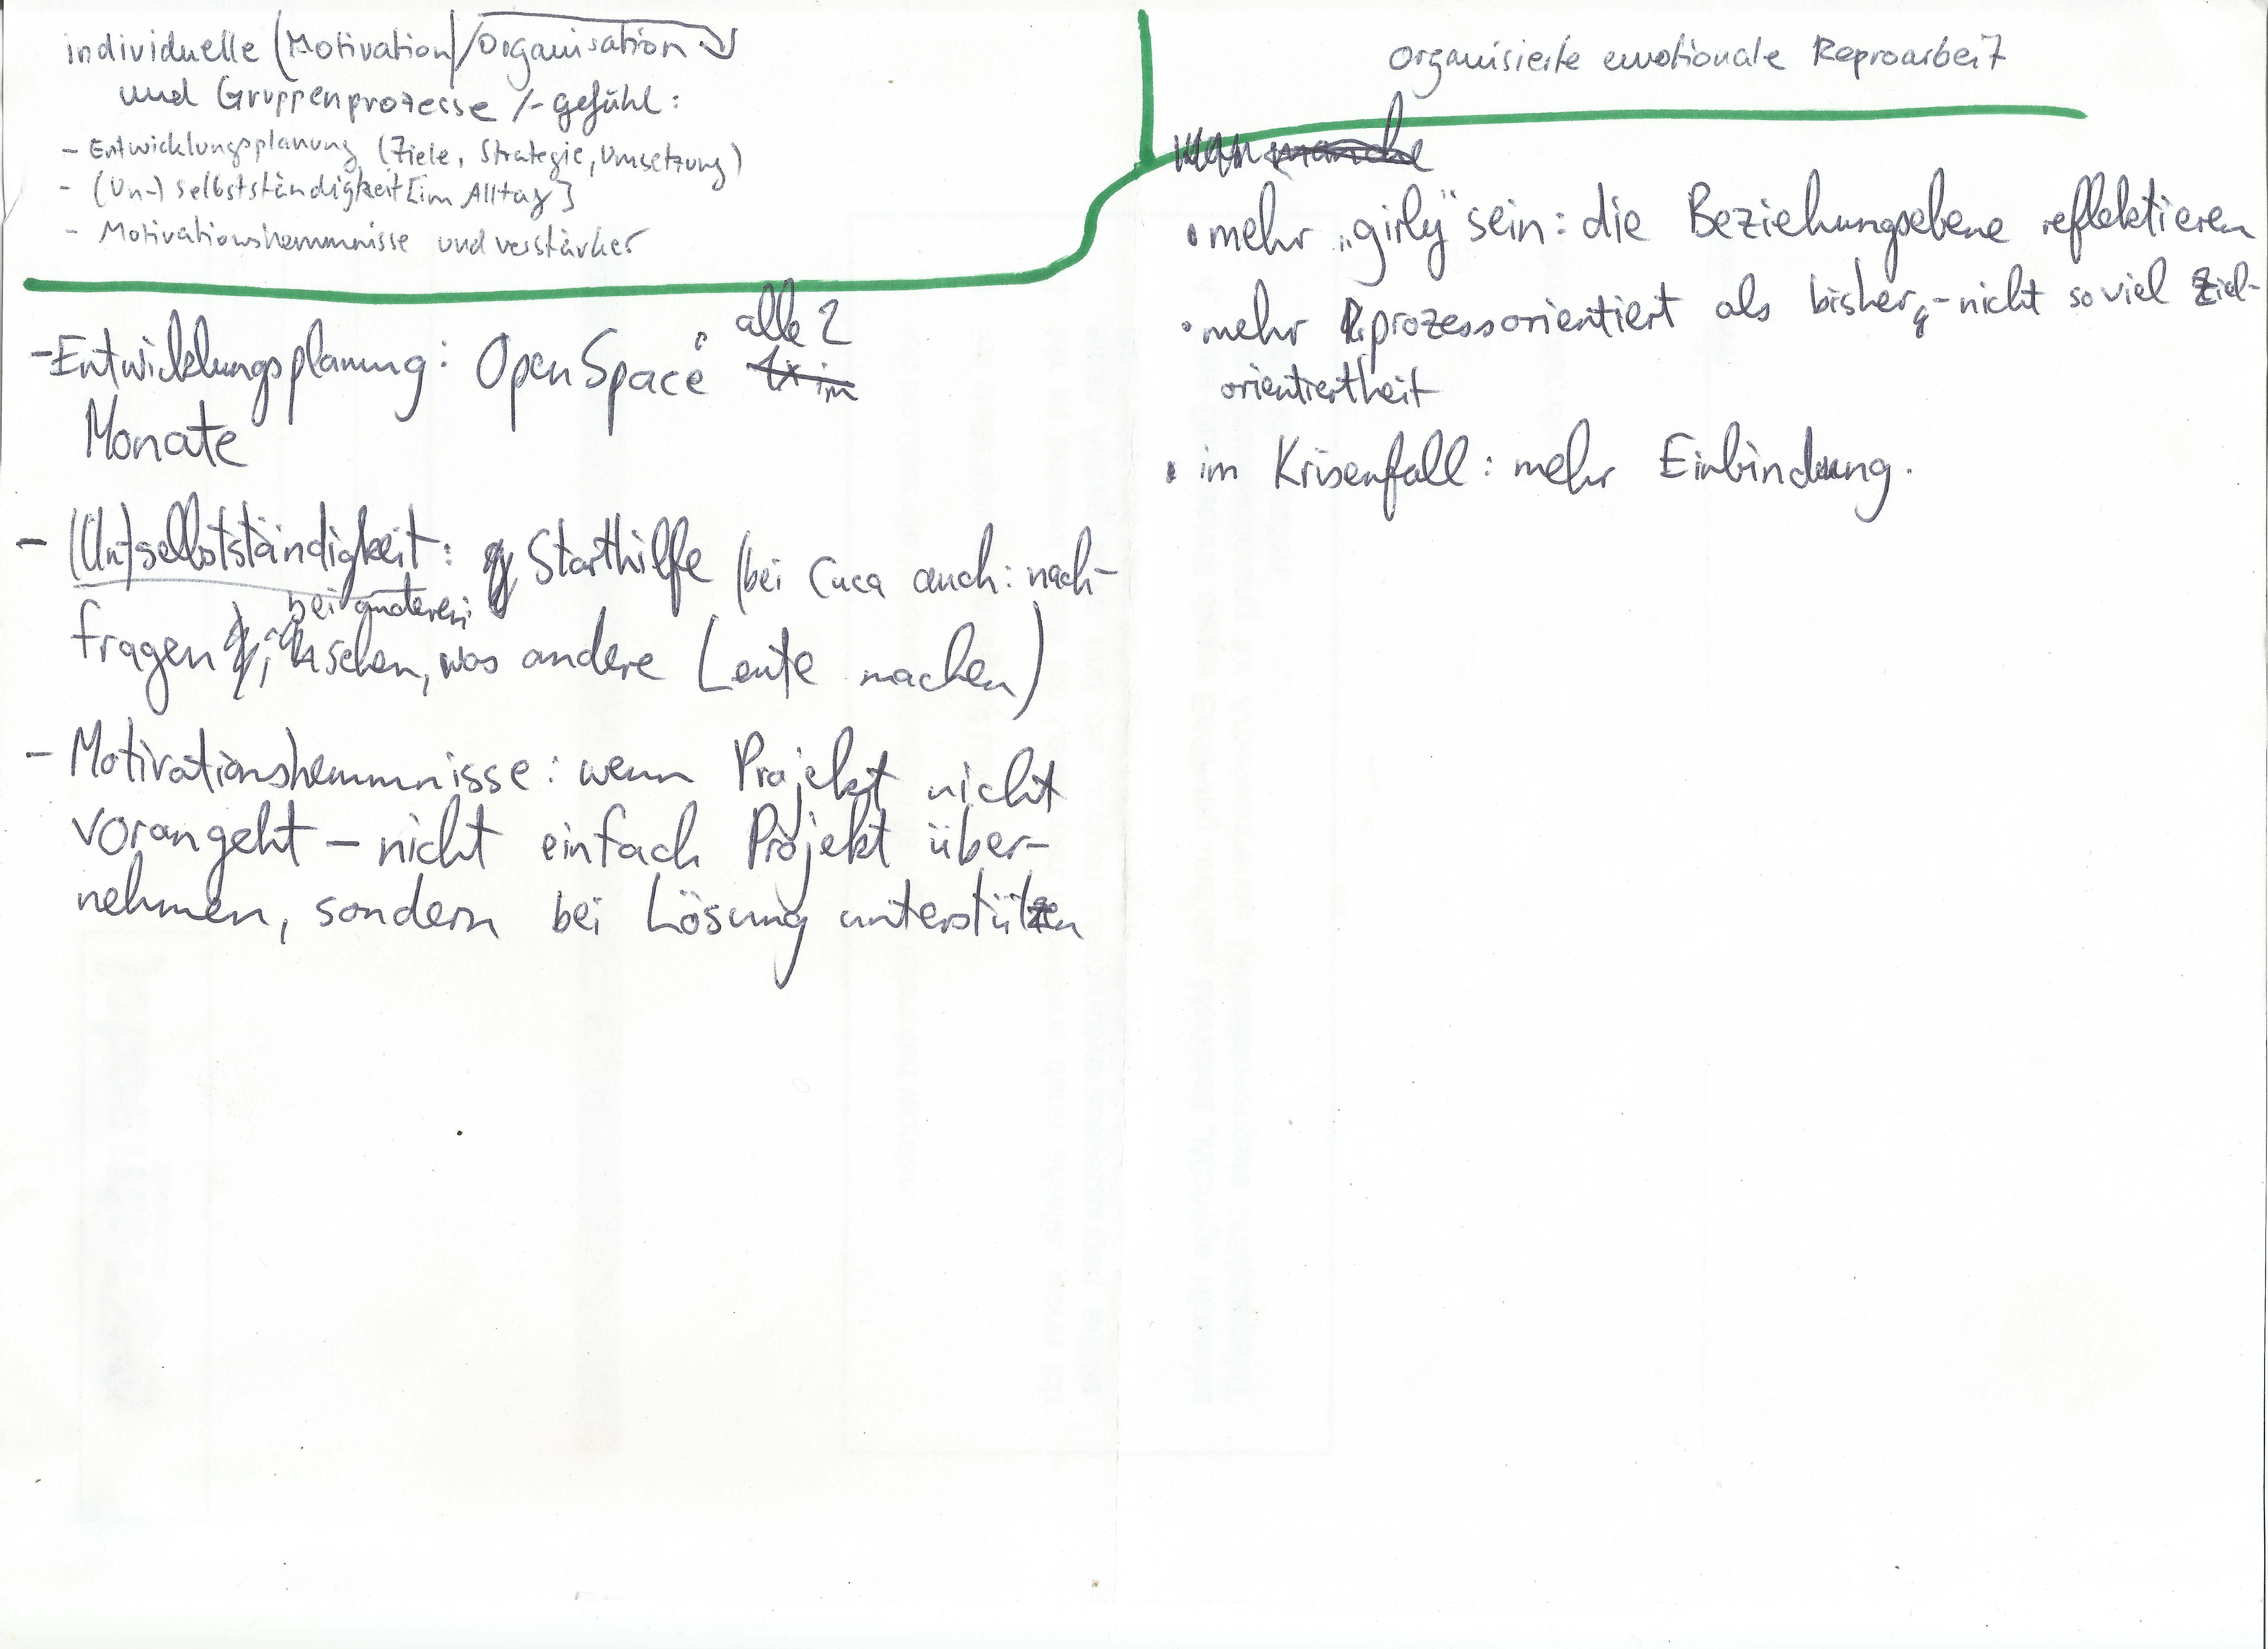 individuelle (Motivation)/Organisation
und Gruppenprozesse /-gefühl:
- Entwicklungsplanung (Ziele, Strategie, Umsetzung)
- (Un-)selbstständigkeit [im Alltag]
- Motivationshemmnisse und verstärker
- Entwicklungsplanung: Open Space alle 2
1x im
Monate
- (Un)selbstständigkeit: Starthilfe (bei Cuca auch: nach-
bei anderen:
fragen; sehen, was andere Leute machen)
- Motivationshemmnisse: wenn Projekt nicht
vorangeht – nicht einfach Projekt über-
nehmen, sondern bei Lösung unterstützen
organisierte emotionale Reproarbeit
manche
• mehr „girly" sein: die Beziehungsebene reflektieren
• mehr prozessorientiert als bisher, - nicht so viel Ziel-
orientiertheit
• im Krisenfall: mehr Einbindung.